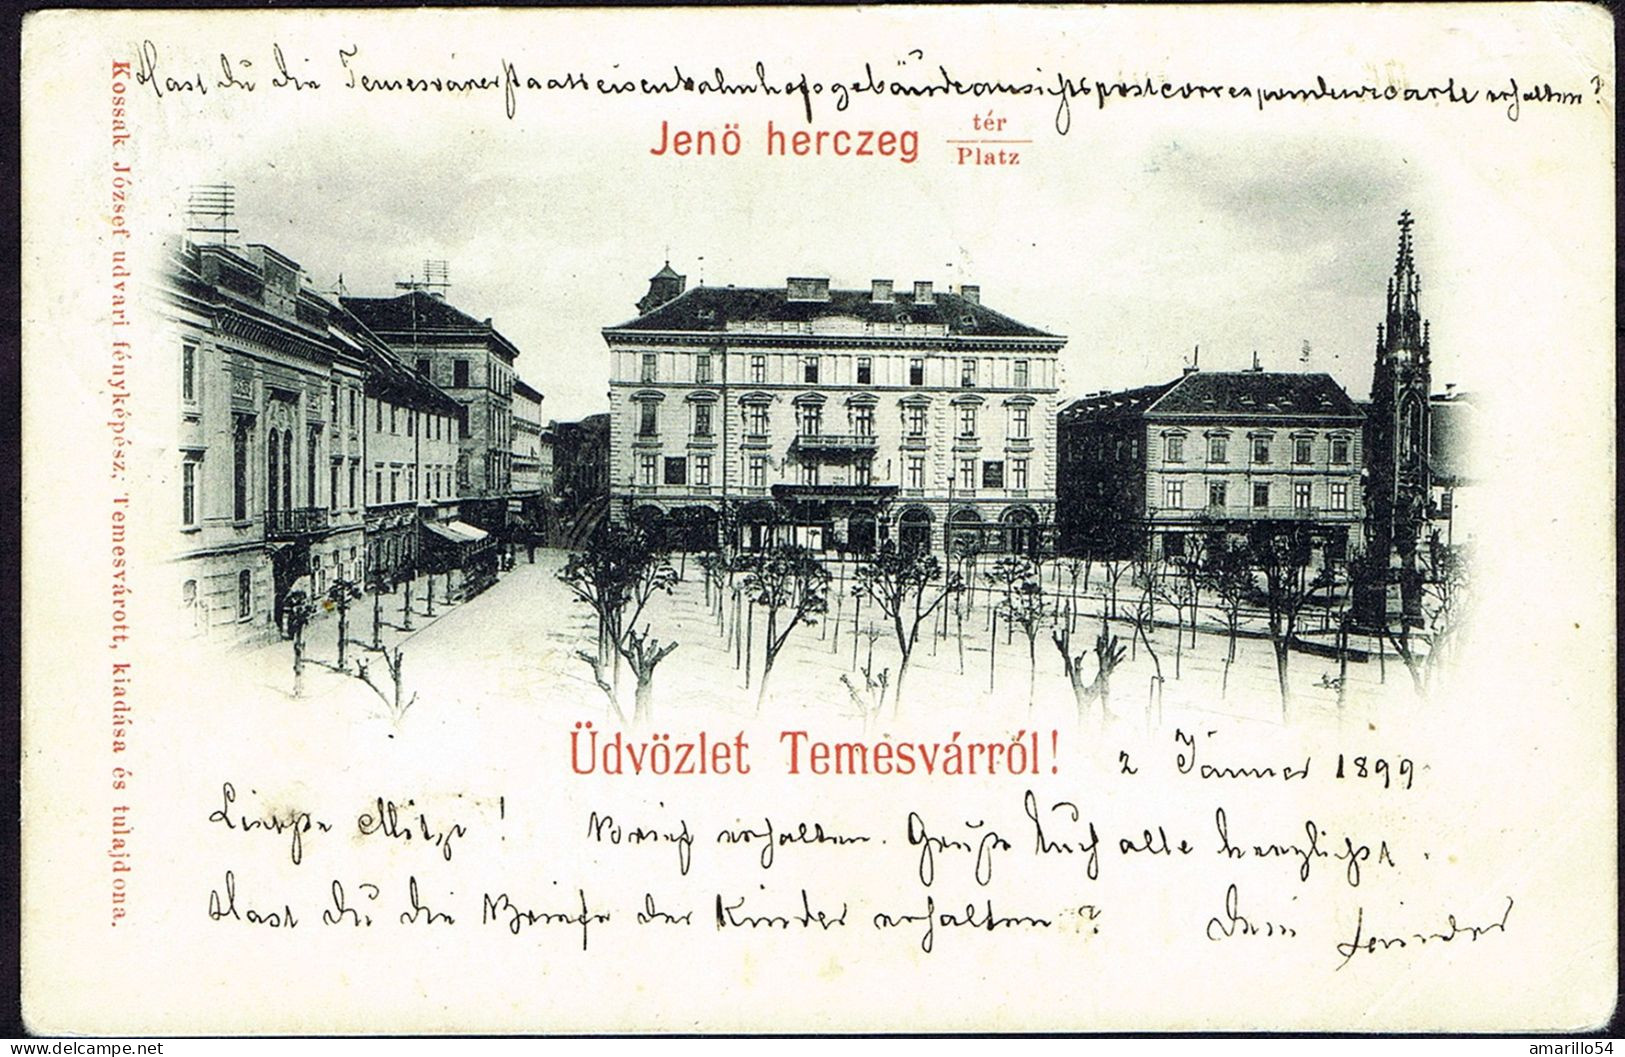 Hast du die Temesvárerstaatseisenbahnhofsgebäudeansichtspostcorrespondenzcarte erhalten?
Jenö herczeg tér
Platz
Kossak József udvari fényképész, Temesvárott, kiadása és tulajdona.
Üdvözlet Temesvárról!
2 Jänner 1899.
Liebste Mitzi! Brief erhalten. Grüße Euch alle herzlichst.
Hast du die Briefe der Kinder erhalten? Dein
amarillo54